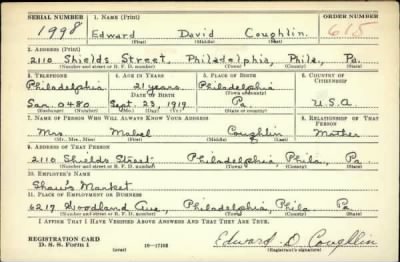 SERIAL NUMBER 1. NAME (Print) ORDER NUMBER
1998 Edward David Coughlin 615
(First) (Middle) (Last)
2. ADDRESS (Print)
2110 Shields Street, Philadelphia, Phila, Pa.
(Number and street or R. F. D. number) (Town) (County) (State)
3. TELEPHONE 4. AGE IN YEARS 5. PLACE OF BIRTH 6. COUNTRY OF CITIZENSHIP
Philadelphia 21 years Philadelphia
DATE OF BIRTH
Sar. 0480 Sept. 23, 1919 Pa. U.S.A
(Exchange) (Number) (Mo.) (Day) (Yr.) (State or country)
7. NAME OF PERSON WHO WILL ALWAYS KNOW YOUR ADDRESS 8. RELATIONSHIP OF THAT PERSON
Mrs. Mabel Coughlin Mother
(Mr., Mrs., Miss) (First) (Middle) (Last)
9. ADDRESS OF THAT PERSON
2110 Shields Street Philadelphia, Phila, Pa
(Number and street or R. F. D. number) (Town) (County) (State)
10. EMPLOYER'S NAME
Shaw's Market
11. PLACE OF EMPLOYMENT OR BUSINESS
6217 Woodland Ave, Philadelphia, Phila Pa
(Number and street or R. F. D. number) (Town) (County) (State)
I AFFIRM THAT I HAVE VERIFIED ABOVE ANSWERS AND THAT THEY ARE TRUE.
REGISTRATION CARD
D. S. S. Form 1 (over) Edward D Coughlin
(Registrant's signature)